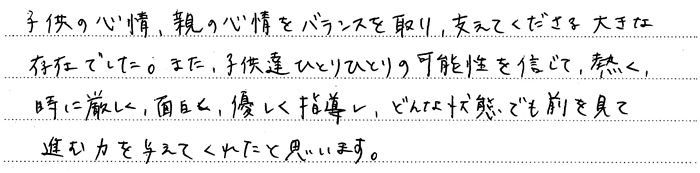 子供の心情,親の心情をバランスを取り,支えてくださる大きな
存在でした。また,子供達ひとりひとりの可能性を信じて,熱く,
時に厳しく,面白く,優しく指導し,どんな状態でも前を見て
進む力を与えてくれたと思います。